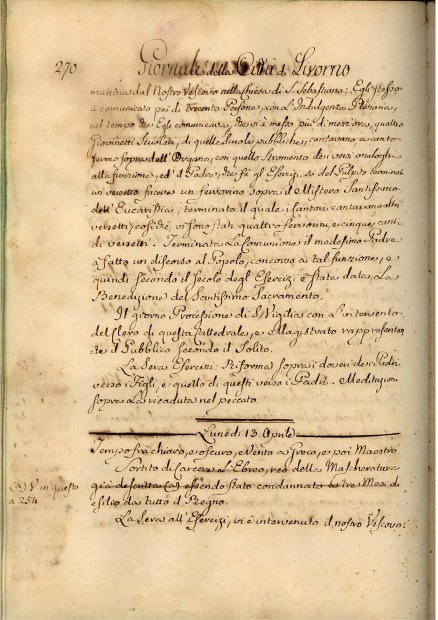 270 Giornale della Città di Livorno
mattina dal Nostro Vescovo nella Chiesa di S. Sebastiano: Egli stesso
à comunicato più di trecento Persone, con L'Indulgenza Plenaria,
nel tempo che Egli comunicava, che vi à messo più di mezz'ora, quattro
Giovinetti Scuolari, di quelle Scuole pubbliche, cantavano a canto
fermo sopra dell'Organo, con quello Stromento dei versi analoghi
alla funzione, ed il Padre, che fà gl'Esercizi, su del Pulpito terminato
un versetto faceva un fervorino sopra il Mistero Santissimo
dell'Eucaristia, terminato il quale i Cantori cantavano altri
versetti, cosicché, vi sono stati quattro fervorini, e cinque canti
di versetti. Terminata La Comunione il medesimo Padre
à fatto un discorso al Popolo, concorso a tal funzione, e
quindi secondo il solito degl'Esercizi è stata data La
Benedizione del Santissimo Sacramento.
Il giorno Processione di S. Vigilia con L'intervento
del Clero di questa Cattedrale, e Magistrato rappresentan
te il Pubblico secondo il Solito.
La Sera Esercizi: Riforma sopra i doveri dei Padri
verso i Figli, e quello di questi verso i Padri. Meditazione
sopra La ricaduta nel peccato.
Lunedì 13 Aprile
Tempo frà chiaro, e oscuro, e Vento a Greco, e poi Maestro
Sortito di Carcere L'Ebreo, reo della Mascheratura
(a) V. in questo già descritta (a) essendo stato condannato tre Mesi di
a 254 esilio da tutto il Regno.
La Sera all'Esercizi, vi è intervenuto il nostro Vescovo: